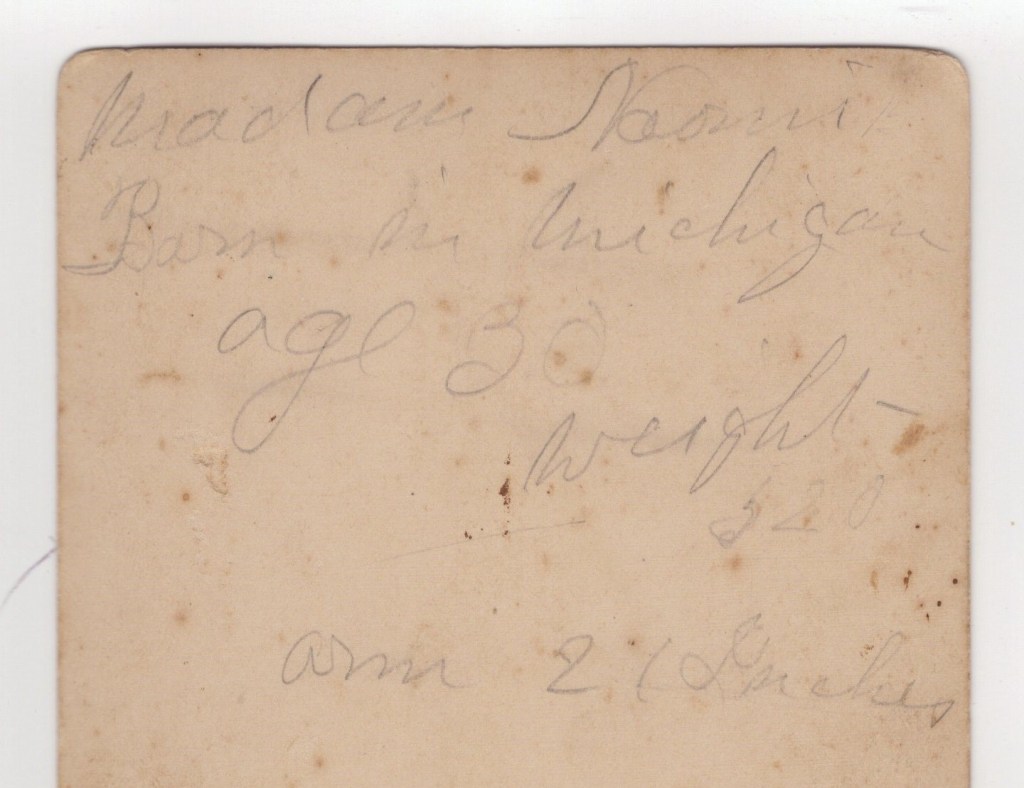 Madam Naomi
Born in Michigan
age 30
weight
520
arm 21 Inches